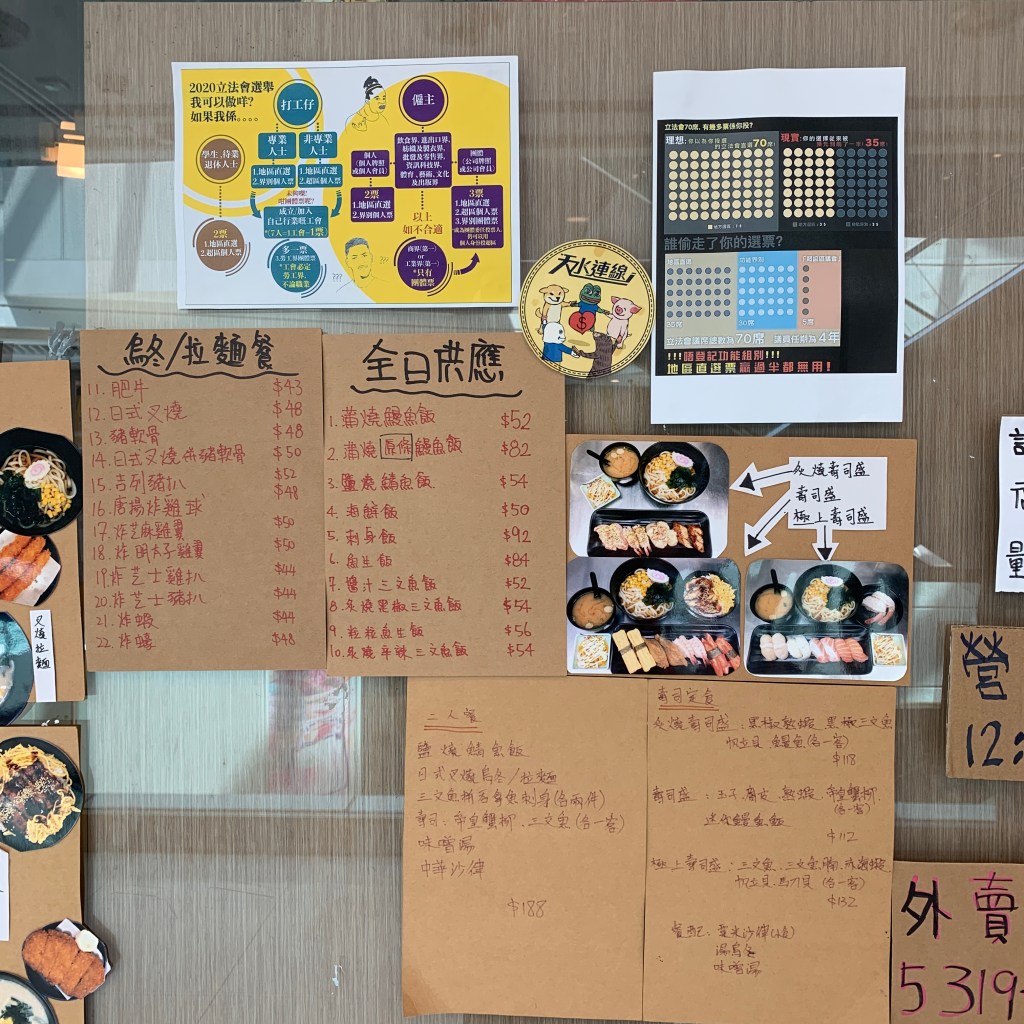 2020立法會選舉
我可以做咩?
如果我係....
打工仔
專業人士
1.地區直選
2.界別個人票
非專業人士
1.地區直選
2.超區個人票
未夠喉?
咁團體票呢?
成立/加入
自己行業嘅工會
*(7人=1工會=1票)
多一票
3.勞工界團體票
*工會必定
勞工界,
不論職業
學生、待業
退休人士
2票
1.地區直選
2.超區個人票
???
僱主
個人
(個人牌照
或個人會員)
2票
1.地區直選
2.界別個人票
飲食界, 進出口界,
紡織及製衣界,
批發及零售界,
資訊科技界,
體育、藝術、文化
及出版界
以上
如不合適
商界(第一)
or
工業界(第一)
*只有
團體票
團體
(公司牌照
或公司會員)
3票
1.地區直選
2.超區個人票
3.界別團體票
立法會70席, 有幾多票係你投?
理想:你以為你投選
立法會直選70席!
現實:你的選擇從來被
35席!
誰偷走了你的選票?
地區直選
35席
功能界別
30席
「超級區議會」
5席
立法會議席總數為70席 議員任期為4年
!!!唔登記功能組別!!!
地區直選票 贏過半都無用!
天水連線
$
烏冬/拉麵餐
11. 肥牛 $43
12. 日式叉燒 $48
13. 豬軟骨 $48
14. 日式叉燒併豬軟骨 $50
15. 吉列豬扒 $52
16. 唐揚炸雞球 $48
17. 炸芝麻雞翼 $50
18. 炸明太子雞翼 $50
19. 炸芝士雞扒 $44
20. 炸芝士豬扒 $44
21. 炸蝦 $44
22. 炸蠔 $48
全日供應
1. 蒲燒鰻魚飯 $52
2. 蒲燒原條鰻魚飯 $82
3. 鹽燒鯖魚飯 $54
4. 海鮮飯 $50
5. 刺身飯 $92
6. 魚生飯 $84
7. 醬汁三文魚飯 $52
8. 炙燒黑椒三文魚飯 $54
9. 粒粒魚生飯 $56
10. 炙燒辛辣三文魚飯 $54
炙燒壽司盛
壽司盛
極上壽司盛
叉燒拉麵
二人餐
鹽燒鯖魚飯
日式叉燒烏冬/拉麵
三文魚拼希靈魚刺身(各兩件)
壽司:帝皇蟹柳、三文魚(各一客)
味噌湯
中華沙律
$188
壽司定食
炙燒壽司盛:黑椒熟蝦、黑椒三文魚
帆立貝 鰻魚(各一客)
$118
壽司盛:玉子 腐皮 熟蝦、帝皇蟹柳、
(各一客)
$112
極上壽司盛:三文魚、三文魚腩、
帆立貝、馬刀貝(各一客)
$132
餐配:粟米沙律(凍)
湯烏冬
味噌湯
量
營
12:
外賣
5319-